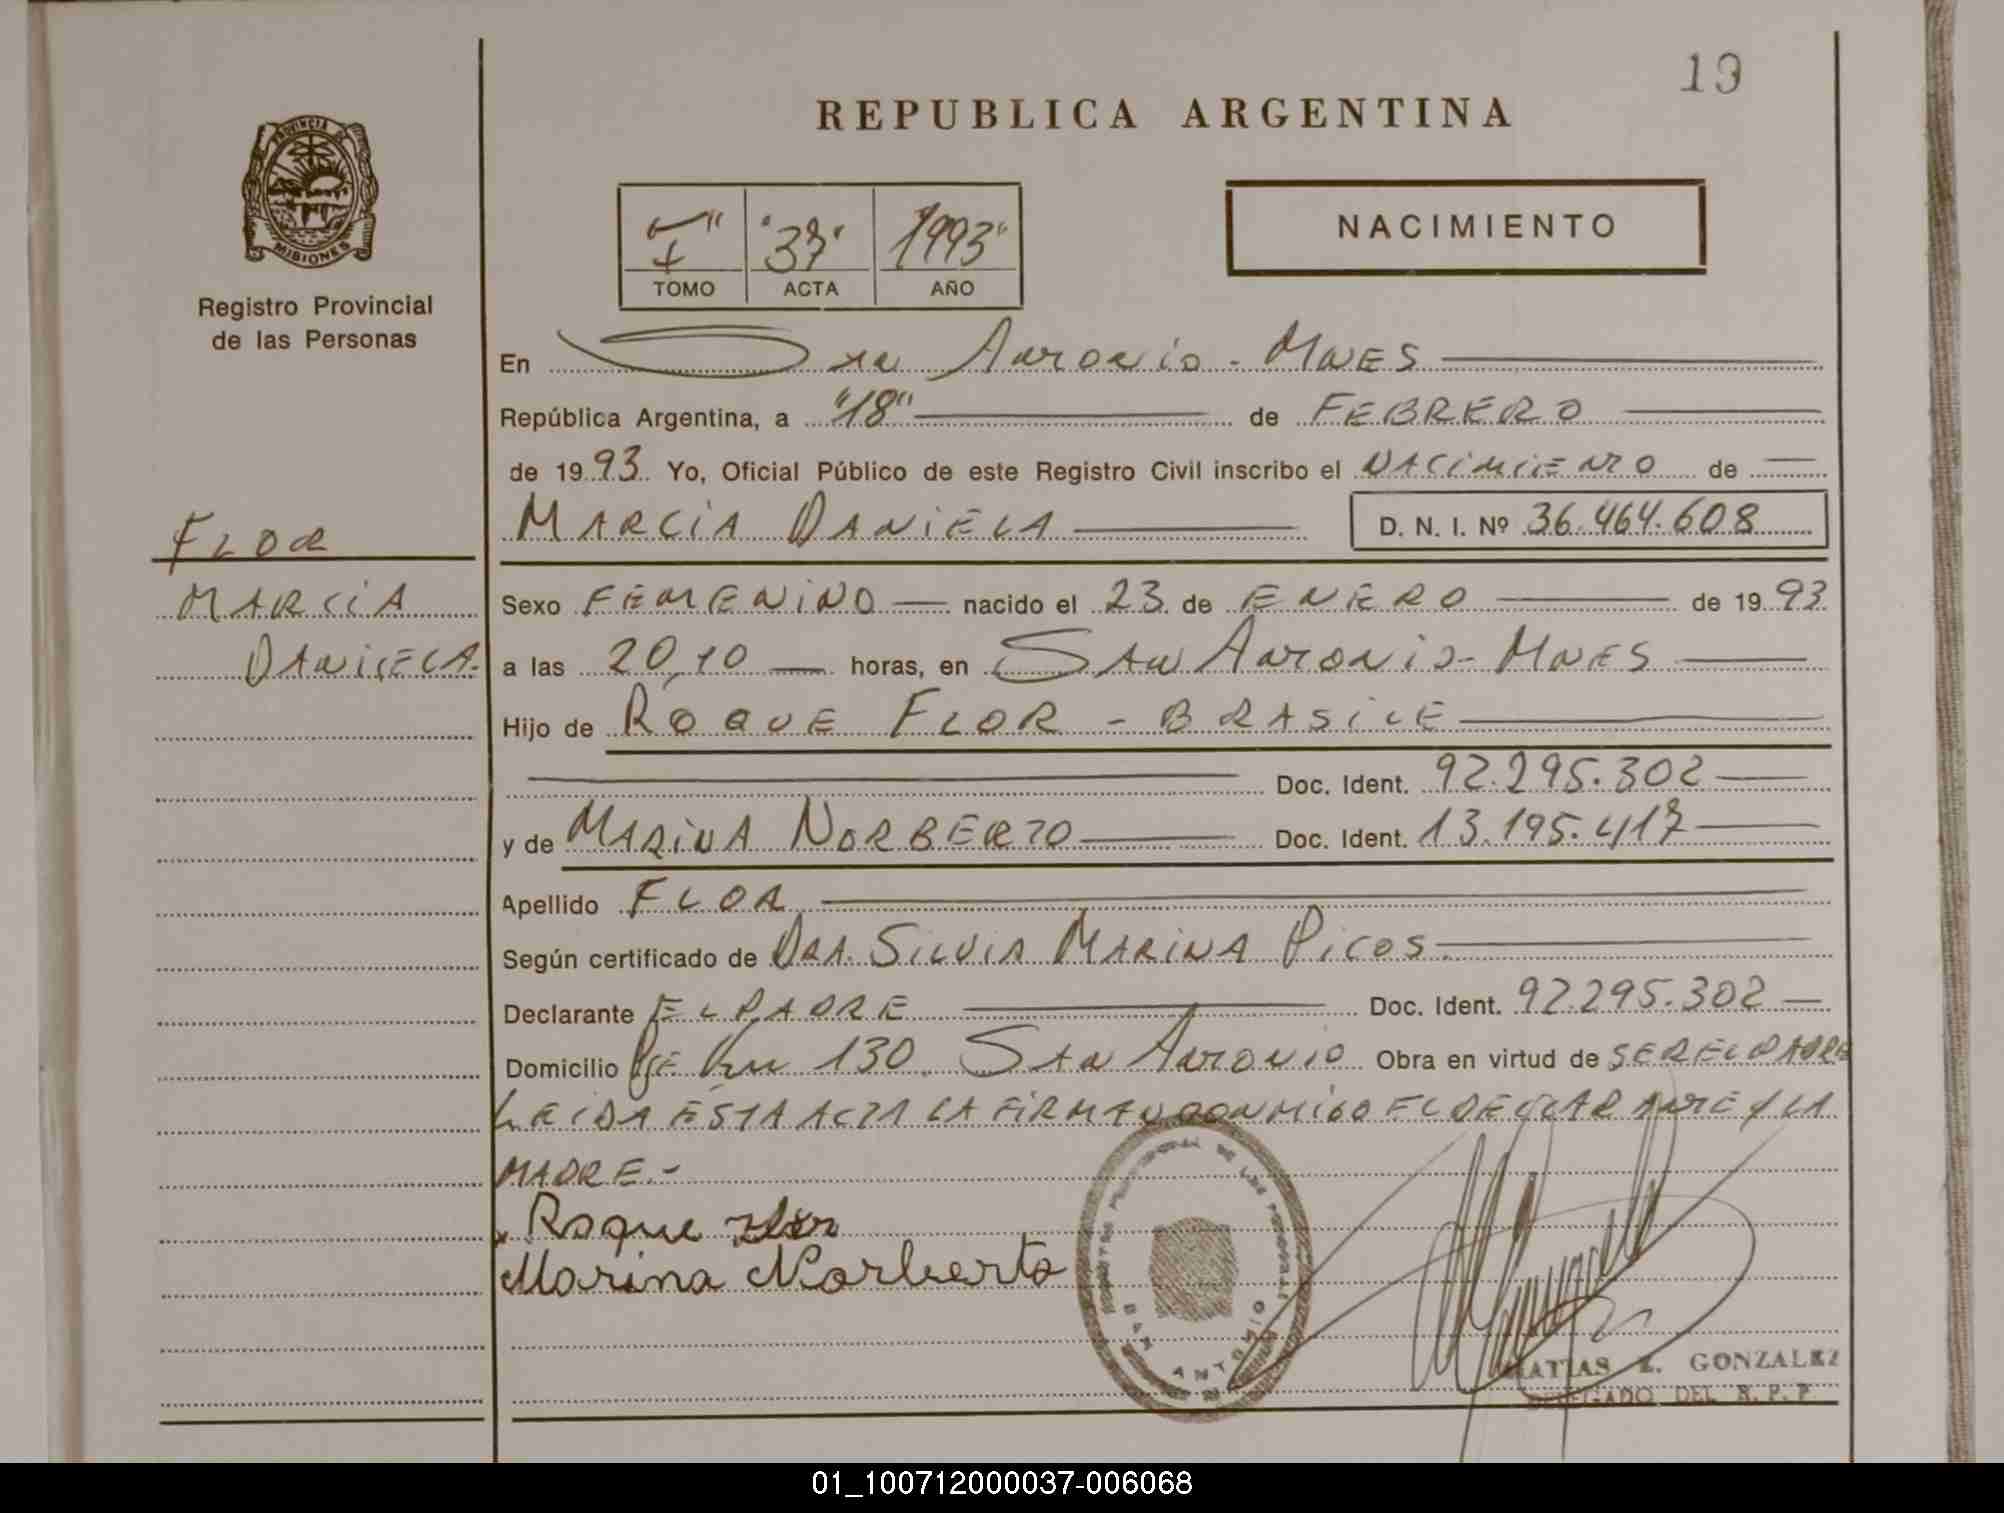 19
REPUBLICA ARGENTINA
PROVINCIA DE
MISIONES
Registro Provincial
de las Personas
I" "37" 1993"
TOMO ACTA AÑO
NACIMIENTO
En San Antonio - Mnes
República Argentina, a "18" de FEBRERO
de 1993 Yo, Oficial Público de este Registro Civil inscribo el NACIMIENTO de
MARCIA DANIELA D. N. I. Nº 36.464.608
FLOR
MARCIA
DANIELA.
Sexo FEMENINO nacido el 23 de ENERO de 1993
a las 20,10 horas, en SAN ANTONIO - MNES
Hijo de ROQUE FLOR - BRASILE
Doc. Ident. 92.295.302
y de MARINA NORBERTO Doc. Ident. 13.195.417
Apellido FLOR
Según certificado de DRA. SILVIA MARINA PICOS.
Declarante EL PADRE Doc. Ident. 92.295.302
Domicilio Pje Km 130. SAN ANTONIO Obra en virtud de SER EL PADRE
LEIDA ESTA ACTA LA FIRMAN CONMIGO EL DECLARANTE Y LA
MADRE.-
Roque Flor
Marina Norberto
REGISTRO PROVINCIAL DE LAS PERSONAS
SAN ANTONIO
MATIAS E. GONZALEZ
DELEGADO DEL R. P. P
01_100712000037-006068